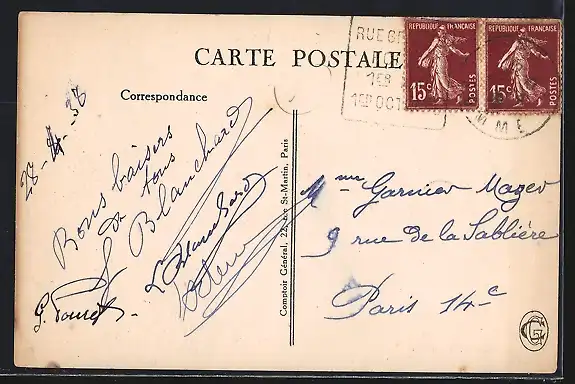 CARTE POSTALE
Correspondance
RUE
1ER
1ER OCT
REPUBLIQUE FRANÇAISE
15c POSTES
REPUBLIQUE FRANÇAISE
15c POSTES
28-4-38
Bons baisers
de tous
Blanchard
L Blanchard
Comptoir Général, 22, rue St-Martin, Paris
Mme Garnier Mager
9 rue de la Sablière
Paris 14e
CG